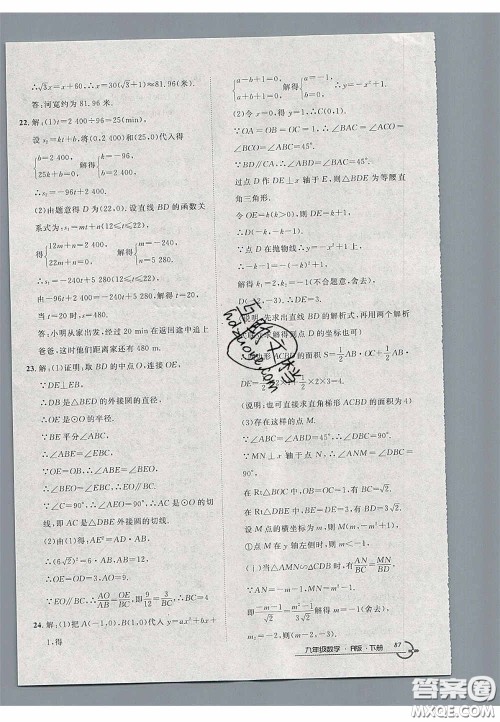 ∴√3x=x+60,∴x=30(√3+1)≈81.96(米).
答:河宽约为 81.96 米.
22.解:(1)t=2 400÷96=25(min),
设 s₂=kt+b,将(0,2 400)和(25,0)代入得
{b=2 400, 25k+b=0, 解得{k=-96, b=2 400.
∴s₂=-96t+2 400;
(2)由题意得 D 为(22,0).设直线 BD 的函数关
系式为,s₁=mt+n(12≤t≤22),
得{12m+n=2 400, 22m+n=0, 解得{m=-240, n=5 280.
∴s₁=-240t+5 280(12≤t≤22).
由-240t+5 280=-96t+2 400 解得 t=20,
当 t=20 时,s=480.
答:小明从家出发,经过 20 min 在返回途中追上
爸爸,这时他们距离家还有 480 m.
23.解:(1)证明:取 BD 的中点 O,连接 OE,
∵DE⊥EB,
∴DB 是△BED 的外接圆的直径.
∴⊙O 是 OE 的半径.
∵BE 平分∠ABC,
∴∠ABE=∠EBC.
∵OE=OB,∴∠ABE=∠BEO.
∴∠BEO=∠EBC,∴OE∥BC.
∵∠C=90°,∴∠AEO=∠C=90°.
∴AC 是⊙O 的切线,即 AC 是⊙O 的切
线,即 AC 是△BDE 的外接圆的切线.
(2)由(1)得:AE²=AD·AB,
∴(6√2)²=6·AB,∴AB=12,
∴OE=OD=3,AO=9.
∵EO∥BC,∴AO/AB=OE/BC,即 9/12=3/BC,∴BC=4.
24.解:(1)把 A(-1,0),B(0,1)代入 y=ax²+bx+
1,得
{a-b+1=0, a+b+1=0, 解得{a=-1, b=0, ∴y=-x²+1.
(2)令 x=0,得 y=1,∴C(0,1).
∵OA=OB=OC=1,∴∠BAC=∠ACO=
∠BCO=∠ABC=45°.
∵BD∥CA,∴∠ABD=∠BAC=45°.
过点 D 作 DE⊥x 轴于 E,则△BDE 为等腰直
角三角形.
令 OE=k(k>0),则 DE=k+1,
∴D(-k,-k-1).
∵点 D 在抛物线 y=-x²+1 上,
∴-k-1=-(-k)²+1,
解得 k₁=2,k₂=-1(不合题意,舍去).
D(-2,-3),∴DE=3.
(说明:先求出直线 BD 的解析式,再用两个解析
(说明:也可直接求直角梯形 ACBD 的面积为 4)
(3)存在这样的点 M.
∵∠ABC=∠ABD=45°,∴∠DBC=90°.
∵MN⊥x 轴于点 N,
∴∠ANM=∠DBC=90°.
在 Rt△BOC 中,OB=OC=1,有 BC=√2.
在 Rt△DBE 中,BE=DE=3,有 BD=3√2.
设 M 点的横坐标为 m,则 M(m,-m²+1).
①点 M 在 y 轴左侧时,则 m<-1.
(ⅰ)当△AMN∽△CDB 时,有 AN/BC=MN/BD.
九年级数学·R版·下册 87
答案圈
MXQE.COM